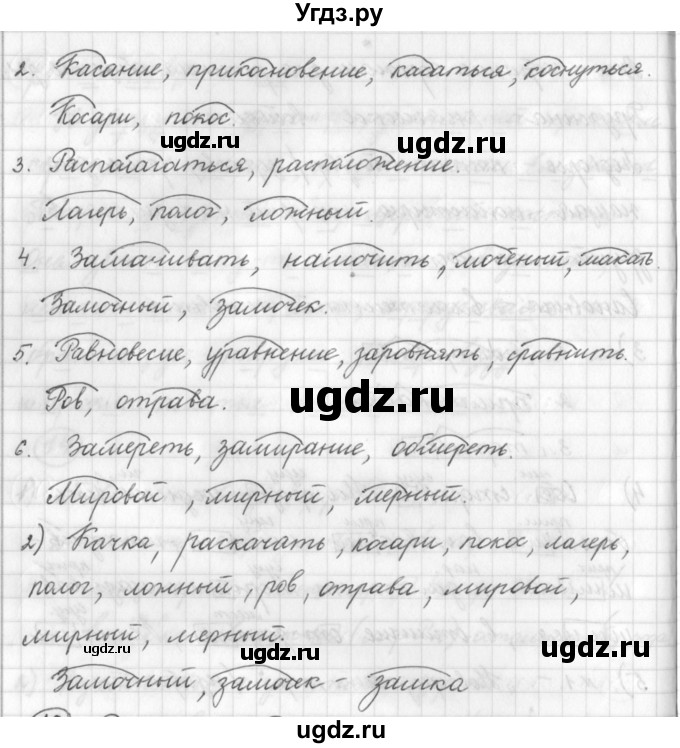 Угдз.ру
2. Касание, прикосновение, касаться, коснуться.
Косари, покос.
ugdz.ru
ugdz.ru
3. Располагаться, расположение.
Лагерь, полог, ложный.
4. Замачивать, намочить, мочёный, макать.
Замочный, замочек.
5. Равновесие, уравнение, заровнять, сравнить.
Ров, отрава.
ugdz.ru
6. Замереть, замирание, обмереть.
Мировой, мирный, мерный.
2) Качка, раскачать, косари, покос, лагерь,
полог, ложный, ров, отрава, мировой,
мирный, мерный.
ugdz.ru
ugdz.ru
Замочный, замочек - замка
ugdz.ru